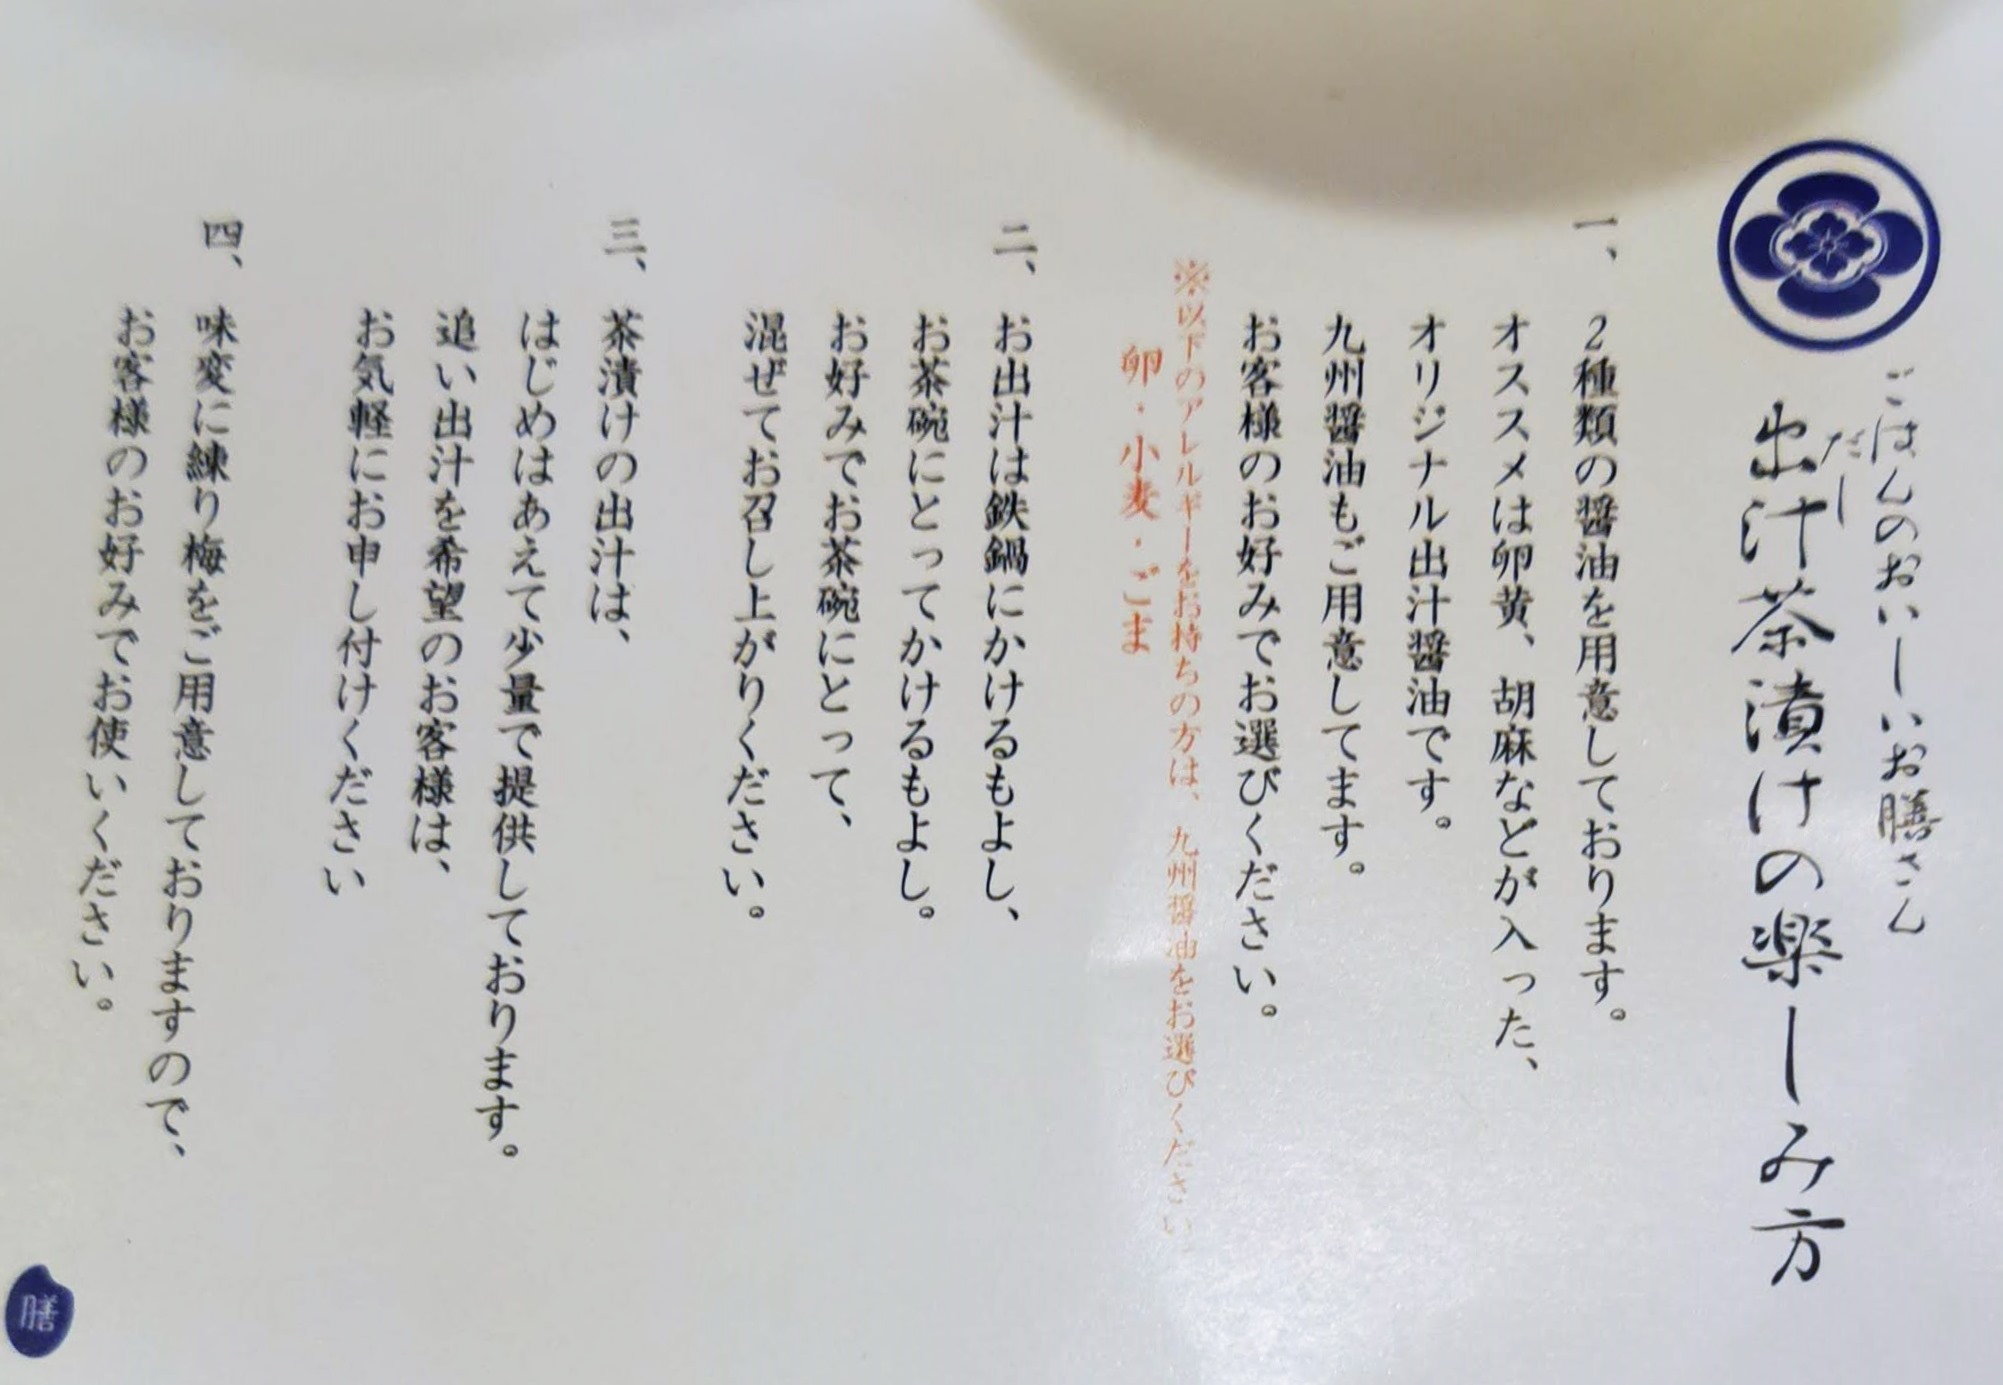 ごはんのおいしーいお膳さん
だし
出汁茶漬けの楽しみ方
一、
2種類の醤油を用意しております。
オススメは卵黄、胡麻などが入った、
オリジナル出汁醤油です。
九州醤油もご用意してます。
お客様のお好みでお選びください。
※以下のアレルギーをお持ちの方は、九州醤油をお選びください
卵・小麦・ごま
二、
お出汁は鉄鍋にかけるもよし、
お茶碗にとってかけるもよし。
お好みでお茶碗にとって、
混ぜてお召し上がりください。
三、
茶漬けの出汁は、
はじめはあえて少量で提供しております。
追い出汁を希望のお客様は、
お気軽にお申し付けください
四、
味変に練り梅をご用意しておりますので、
お客様のお好みでお使いください。
膳